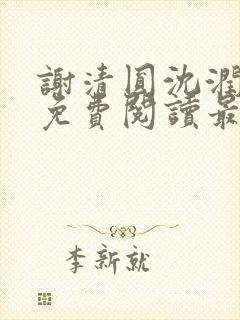 謝清圓沈潤
免費閱讀最
李新就